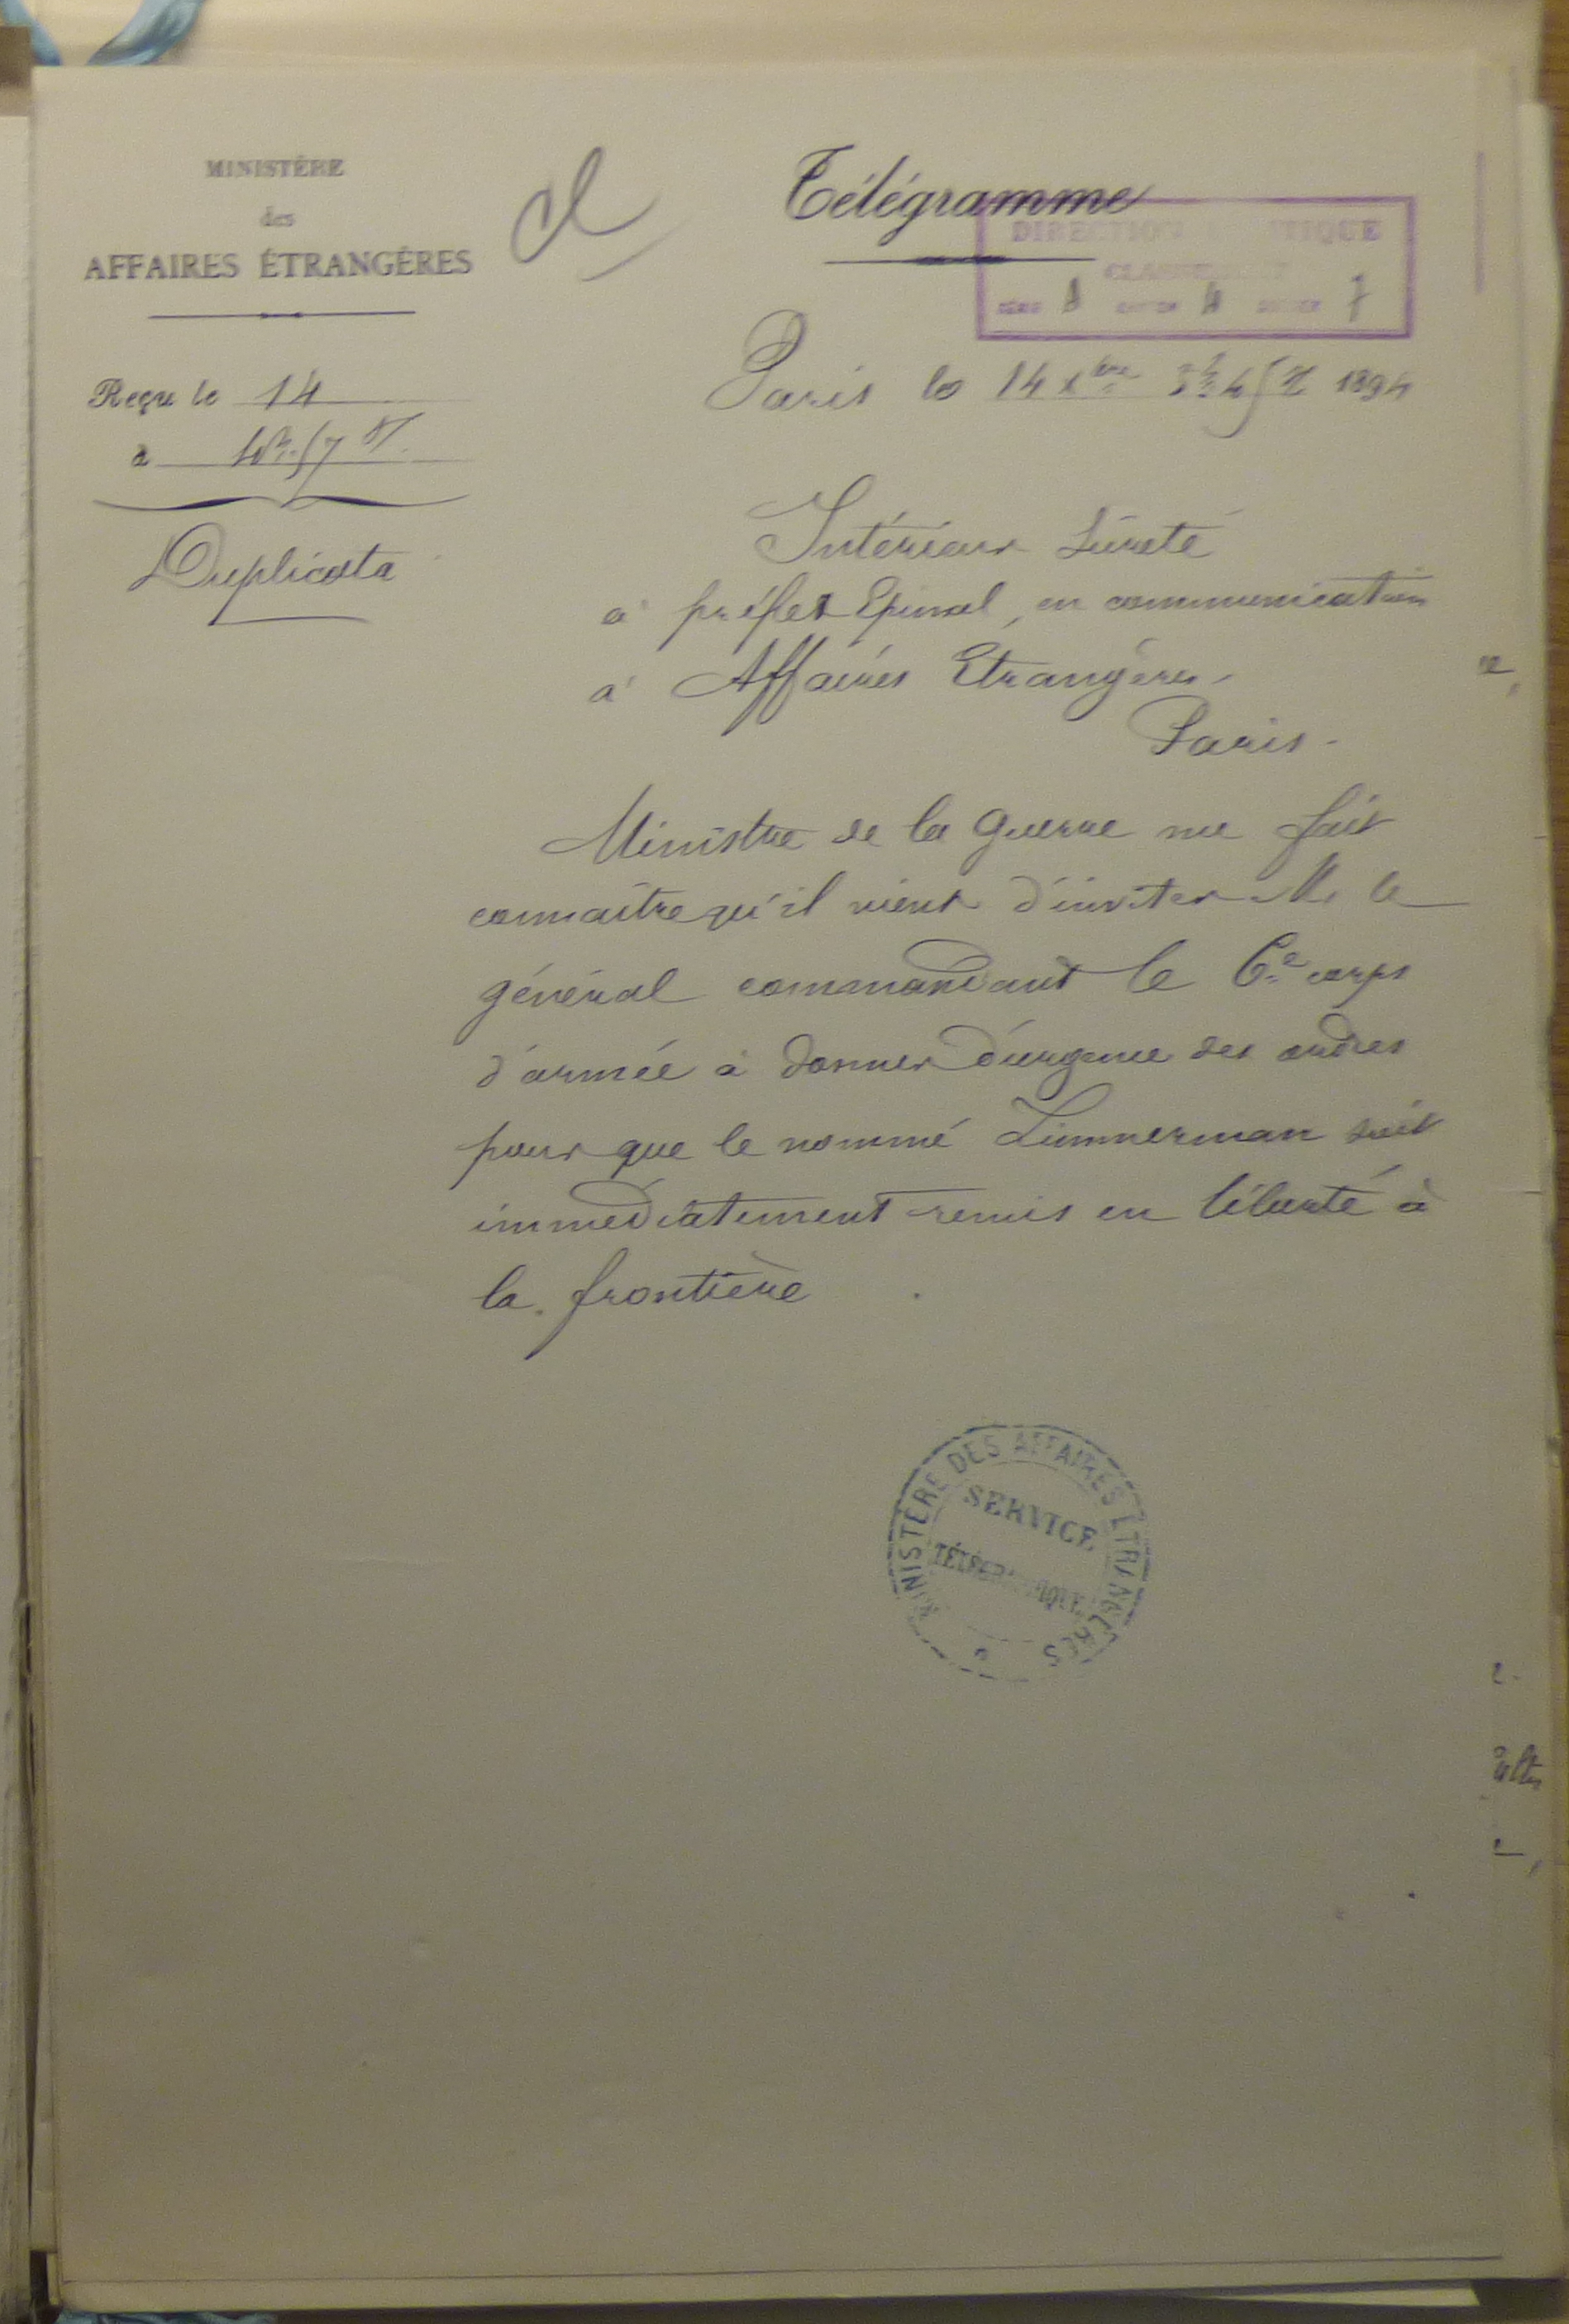 MINISTÈRE
des
AFFAIRES ÉTRANGÈRES
Reçu le 14
à
Duplicata
Télégramme
DIRECTION POLITIQUE
CLASSEMENT
SÉRIE CARTON DOSSIER 7
Paris le 14 Xbre 1894
Intérieur Sûreté
à préfet Epinal, en communication
à Affaires Etrangères.
Paris.
Ministre de la Guerre me fait
connaître qu'il vient d'inviter M. le
général commandant le 6e corps
d'armée à donner d'urgence des ordres
pour que le nommé Zimmerman soit
immédiatement remis en liberté à
la frontière.
MINISTÈRE DES AFFAIRES ÉTRANGÈRES
SERVICE
TÉLÉGRAPHIQUE